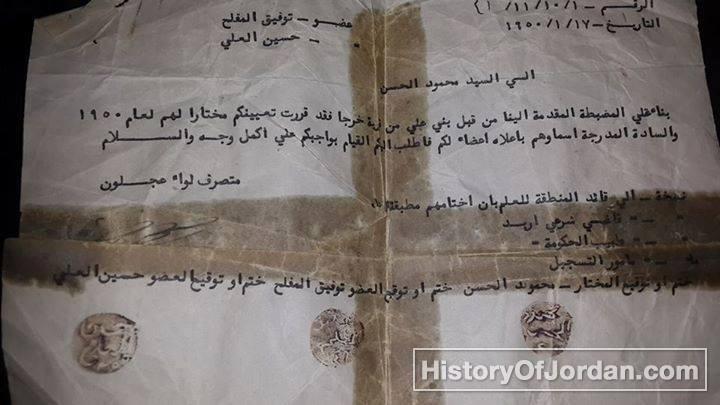 الرقم - ١/١٠/١١/
التاريخ - ١٩٥٠/١/١٧
عضو - توفيق المفلح
" - حسين العلي
الى السيد محمود الحسن
بناء على المضبطة المقدمة الينا من قبل بني علي من زبدة خرجا فقد قررت تعيينكم مختارا لهم لعام ١٩٥٠
والسادة المدرجة اسماوهم باعلاه اعضاء لكم فاطلب اليكم القيام بواجبكم علي اكمل وجه والسلام
متصرف لواء عجلون
نسخة - الي قائد المنطقة للعلم بان اختامهم مطبقة
" - قاضي شرعي اربد
" - طبيب الحكومة
" - مامور التسجيل
ختم او توقيع المختار - محمود الحسن ختم او توقيع العضو توفيق المفلح ختم او توقيع العضو حسين العلي
HistoryOfJordan.com